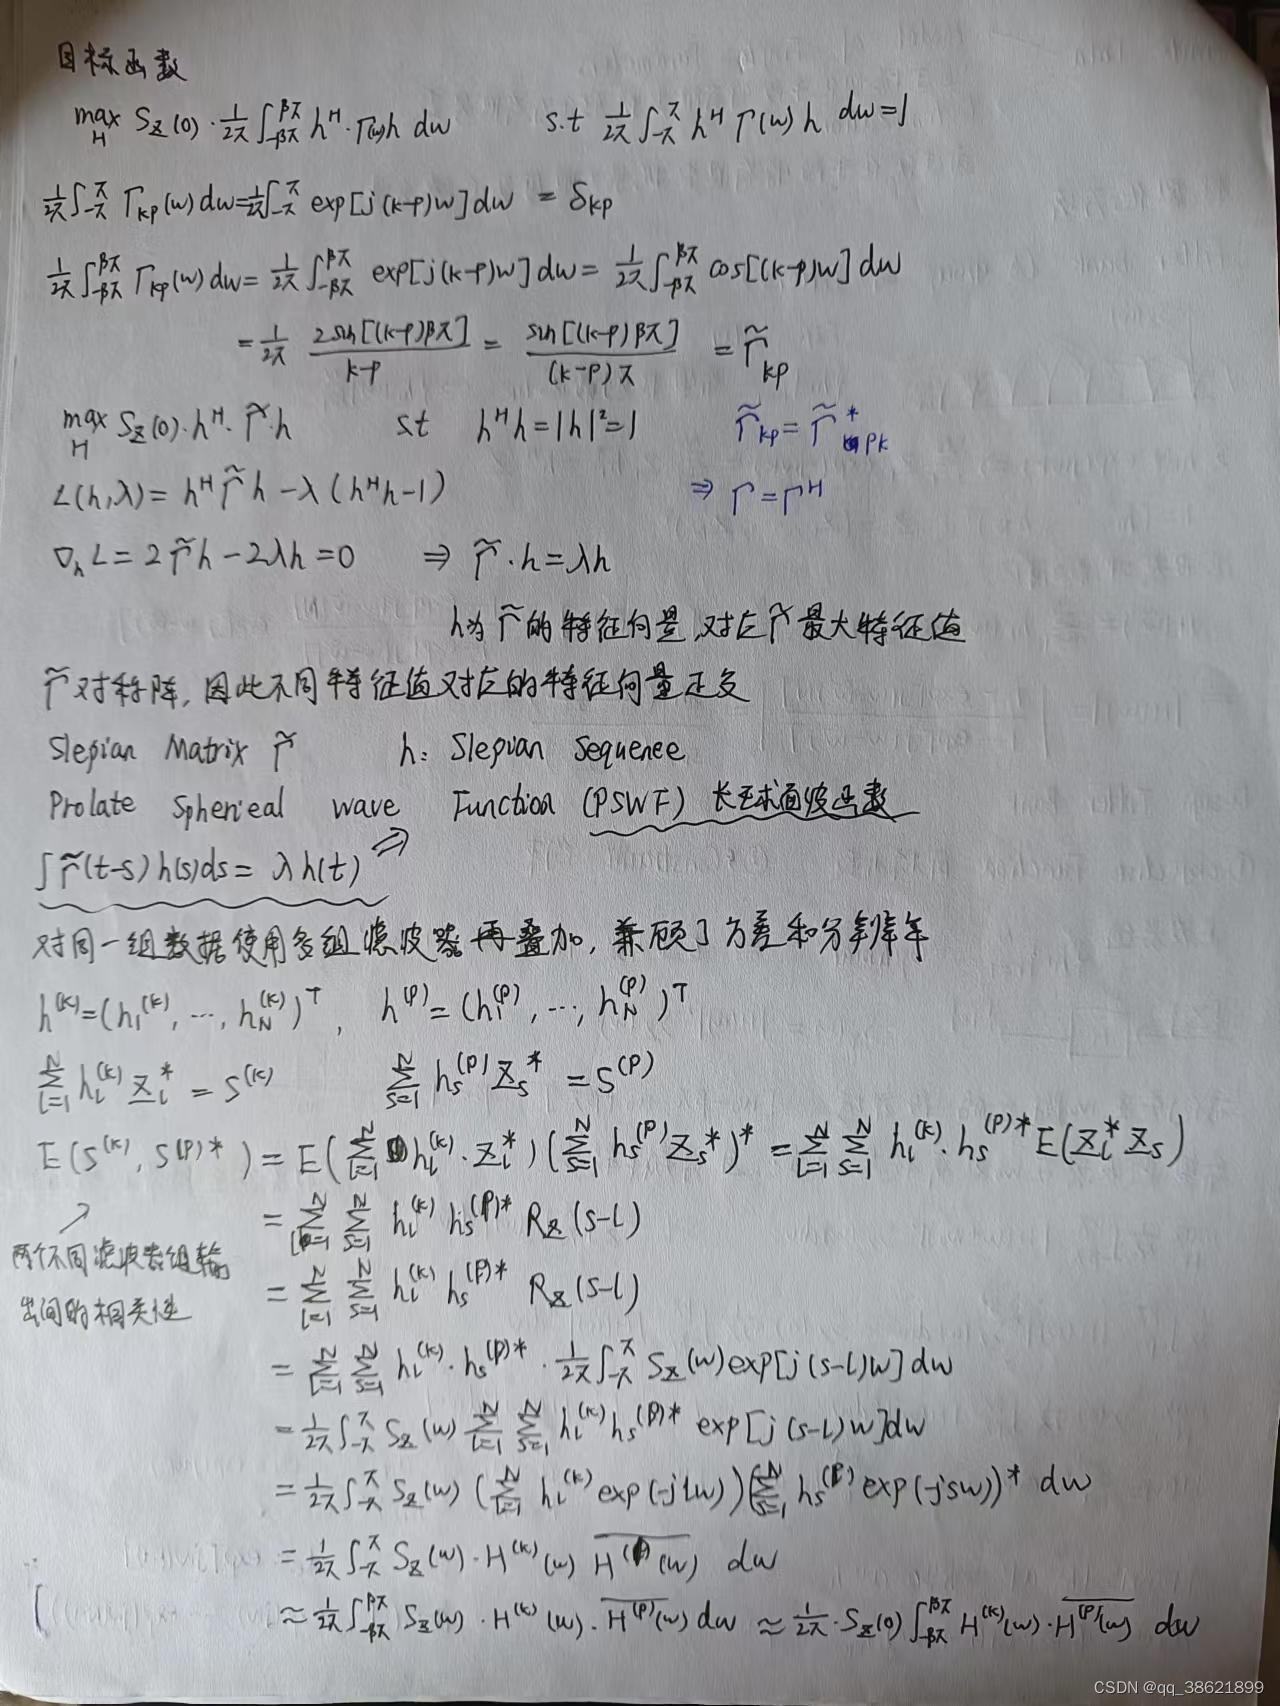 目标函数
max_H S_Z(0)·1/2π ∫_{-βπ}^{βπ} h^H·Γ(w)h dw  s.t 1/2π ∫_{-π}^{π} h^H Γ(w) h dw=1
1/2π ∫_{-π}^{π} Γ_{kp}(w)dw=1/2π ∫_{-π}^{π} exp[j(k-p)w]dw = δ_{kp}
1/2π ∫_{-βπ}^{βπ} Γ_{kp}(w)dw= 1/2π ∫_{-βπ}^{βπ} exp[j(k-p)w]dw= 1/2π ∫_{-βπ}^{βπ} cos[(k-p)w]dw
= 1/2π 2sin[(k-p)βπ]/(k-p) = sin[(k-p)βπ]/((k-p)π) = Γ̃_{kp}
max_H S_Z(0)·h^H·Γ̃·h  s.t h^H h=|h|²=1  Γ̃_{kp}=Γ̃*_{pk}
L(h,λ)= h^H Γ̃ h -λ(h^H h-1)  ⇒ Γ=Γ^H
∇_h L= 2Γ̃h-2λh=0 ⇒ Γ̃·h=λh
h为Γ̃的特征向量,对应Γ̃最大特征值
Γ̃对称阵,因此不同特征值对应的特征向量正交
Slepian Matrix Γ̃  h: Slepian Sequence
Prolate Spherical wave Function (PSWF) 长球面波函数
∫Γ̃(t-s)h(s)ds= λh(t) ⇒
对同一组数据使用多组滤波器再叠加,兼顾了方差和分辨率
h^(k)=(h_1^(k), ..., h_N^(k))^T, h^(p)=(h_1^(p), ..., h_N^(p))^T
Σ_{l=1}^N h_l^(k) Z_l* = S^(k)  Σ_{s=1}^N h_s^(p) Z_s* = S^(p)
E(S^(k), S^(p)*) = E(Σ_{l=1}^N h_l^(k)·Z_l*)(Σ_{s=1}^N h_s^(p) Z_s*)* = Σ_{l=1}^N Σ_{s=1}^N h_l^(k)·h_s^(p)* E(Z_l* Z_s)
= Σ_{l=1}^N Σ_{s=1}^N h_l^(k) h_s^(p)* R_Z(s-l)
两个不同滤波器组输
出间的相关性
= Σ_{l=1}^N Σ_{s=1}^N h_l^(k) h_s^(p)* R_Z(s-l)
= Σ_{l=1}^N Σ_{s=1}^N h_l^(k)·h_s^(p)*·1/2π ∫_{-π}^{π} S_Z(w)exp[j(s-l)w]dw
= 1/2π ∫_{-π}^{π} S_Z(w) Σ_{l=1}^N Σ_{s=1}^N h_l^(k) h_s^(p)* exp[j(s-l)w]dw
= 1/2π ∫_{-π}^{π} S_Z(w) (Σ_{l=1}^N h_l^(k) exp(-jlw))(Σ_{s=1}^N h_s^(p) exp(-jsw))* dw
= 1/2π ∫_{-π}^{π} S_Z(w)·H^(k)(w) \overline{H^(p)(w)} dw
≈ 1/2π ∫_{-βπ}^{βπ} S_Z(w)·H^(k)(w)·\overline{H^(p)(w)} dw ≈ 1/2π·S_Z(0) ∫_{-βπ}^{βπ} H^(k)(w)·\overline{H^(p)(w)} dw
CSDN @qq_38621899